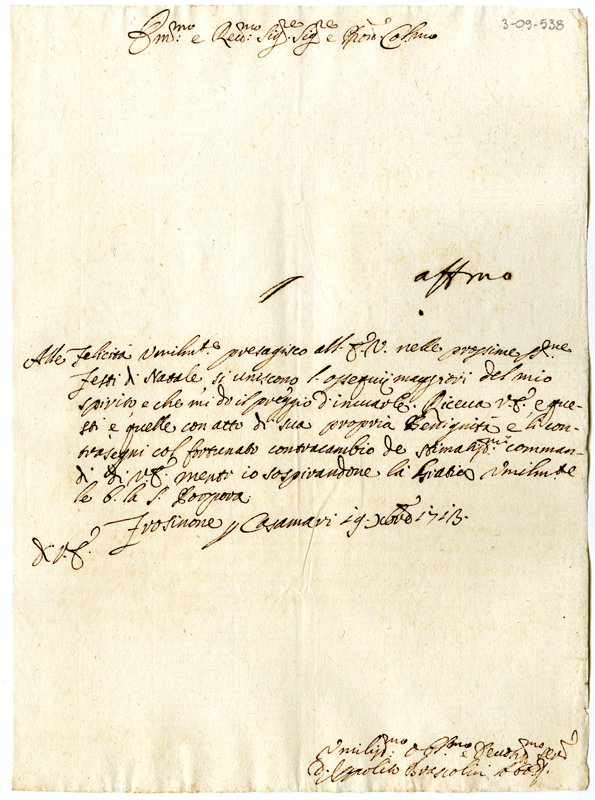 3-09-538
Em.mo: e Reu.mo: Sig.re Sig.re e Pron.e Col.mo
affmo
Alle Felicità Vmilm.te presagisco all' E.V. nelle prossime S.me
Festi di Natale, si uniscono l'ossequij maggiori del mio
spirito, e che mi dò il preggio d'inuiarle. Riceua V.E. e que-
sti e quelle con atto di sua propria Benignità e li con-
trasegni col fortunato contracambio de stimatiss.mi comman-
di di V.E. mentre io sospirandone la Gratia Vmilm.te
le b. la S. Porpora.
Frosinone p Casamari 19. Xbre 1713.
di V.E.
Vmiliss.mo e Deuotiss.mo
D. Ipolito